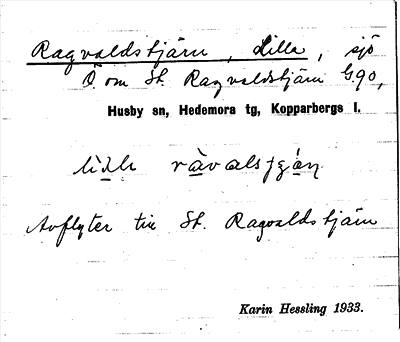 Ragvaldstjärn, Lilla, sjö
Ö. om St. Ragvaldstjärn G.90,
Husby sn, Hedemora tg, Kopparbergs l.
Avflyter till St. Ragvaldstjärn
Karin Hessling 1933.